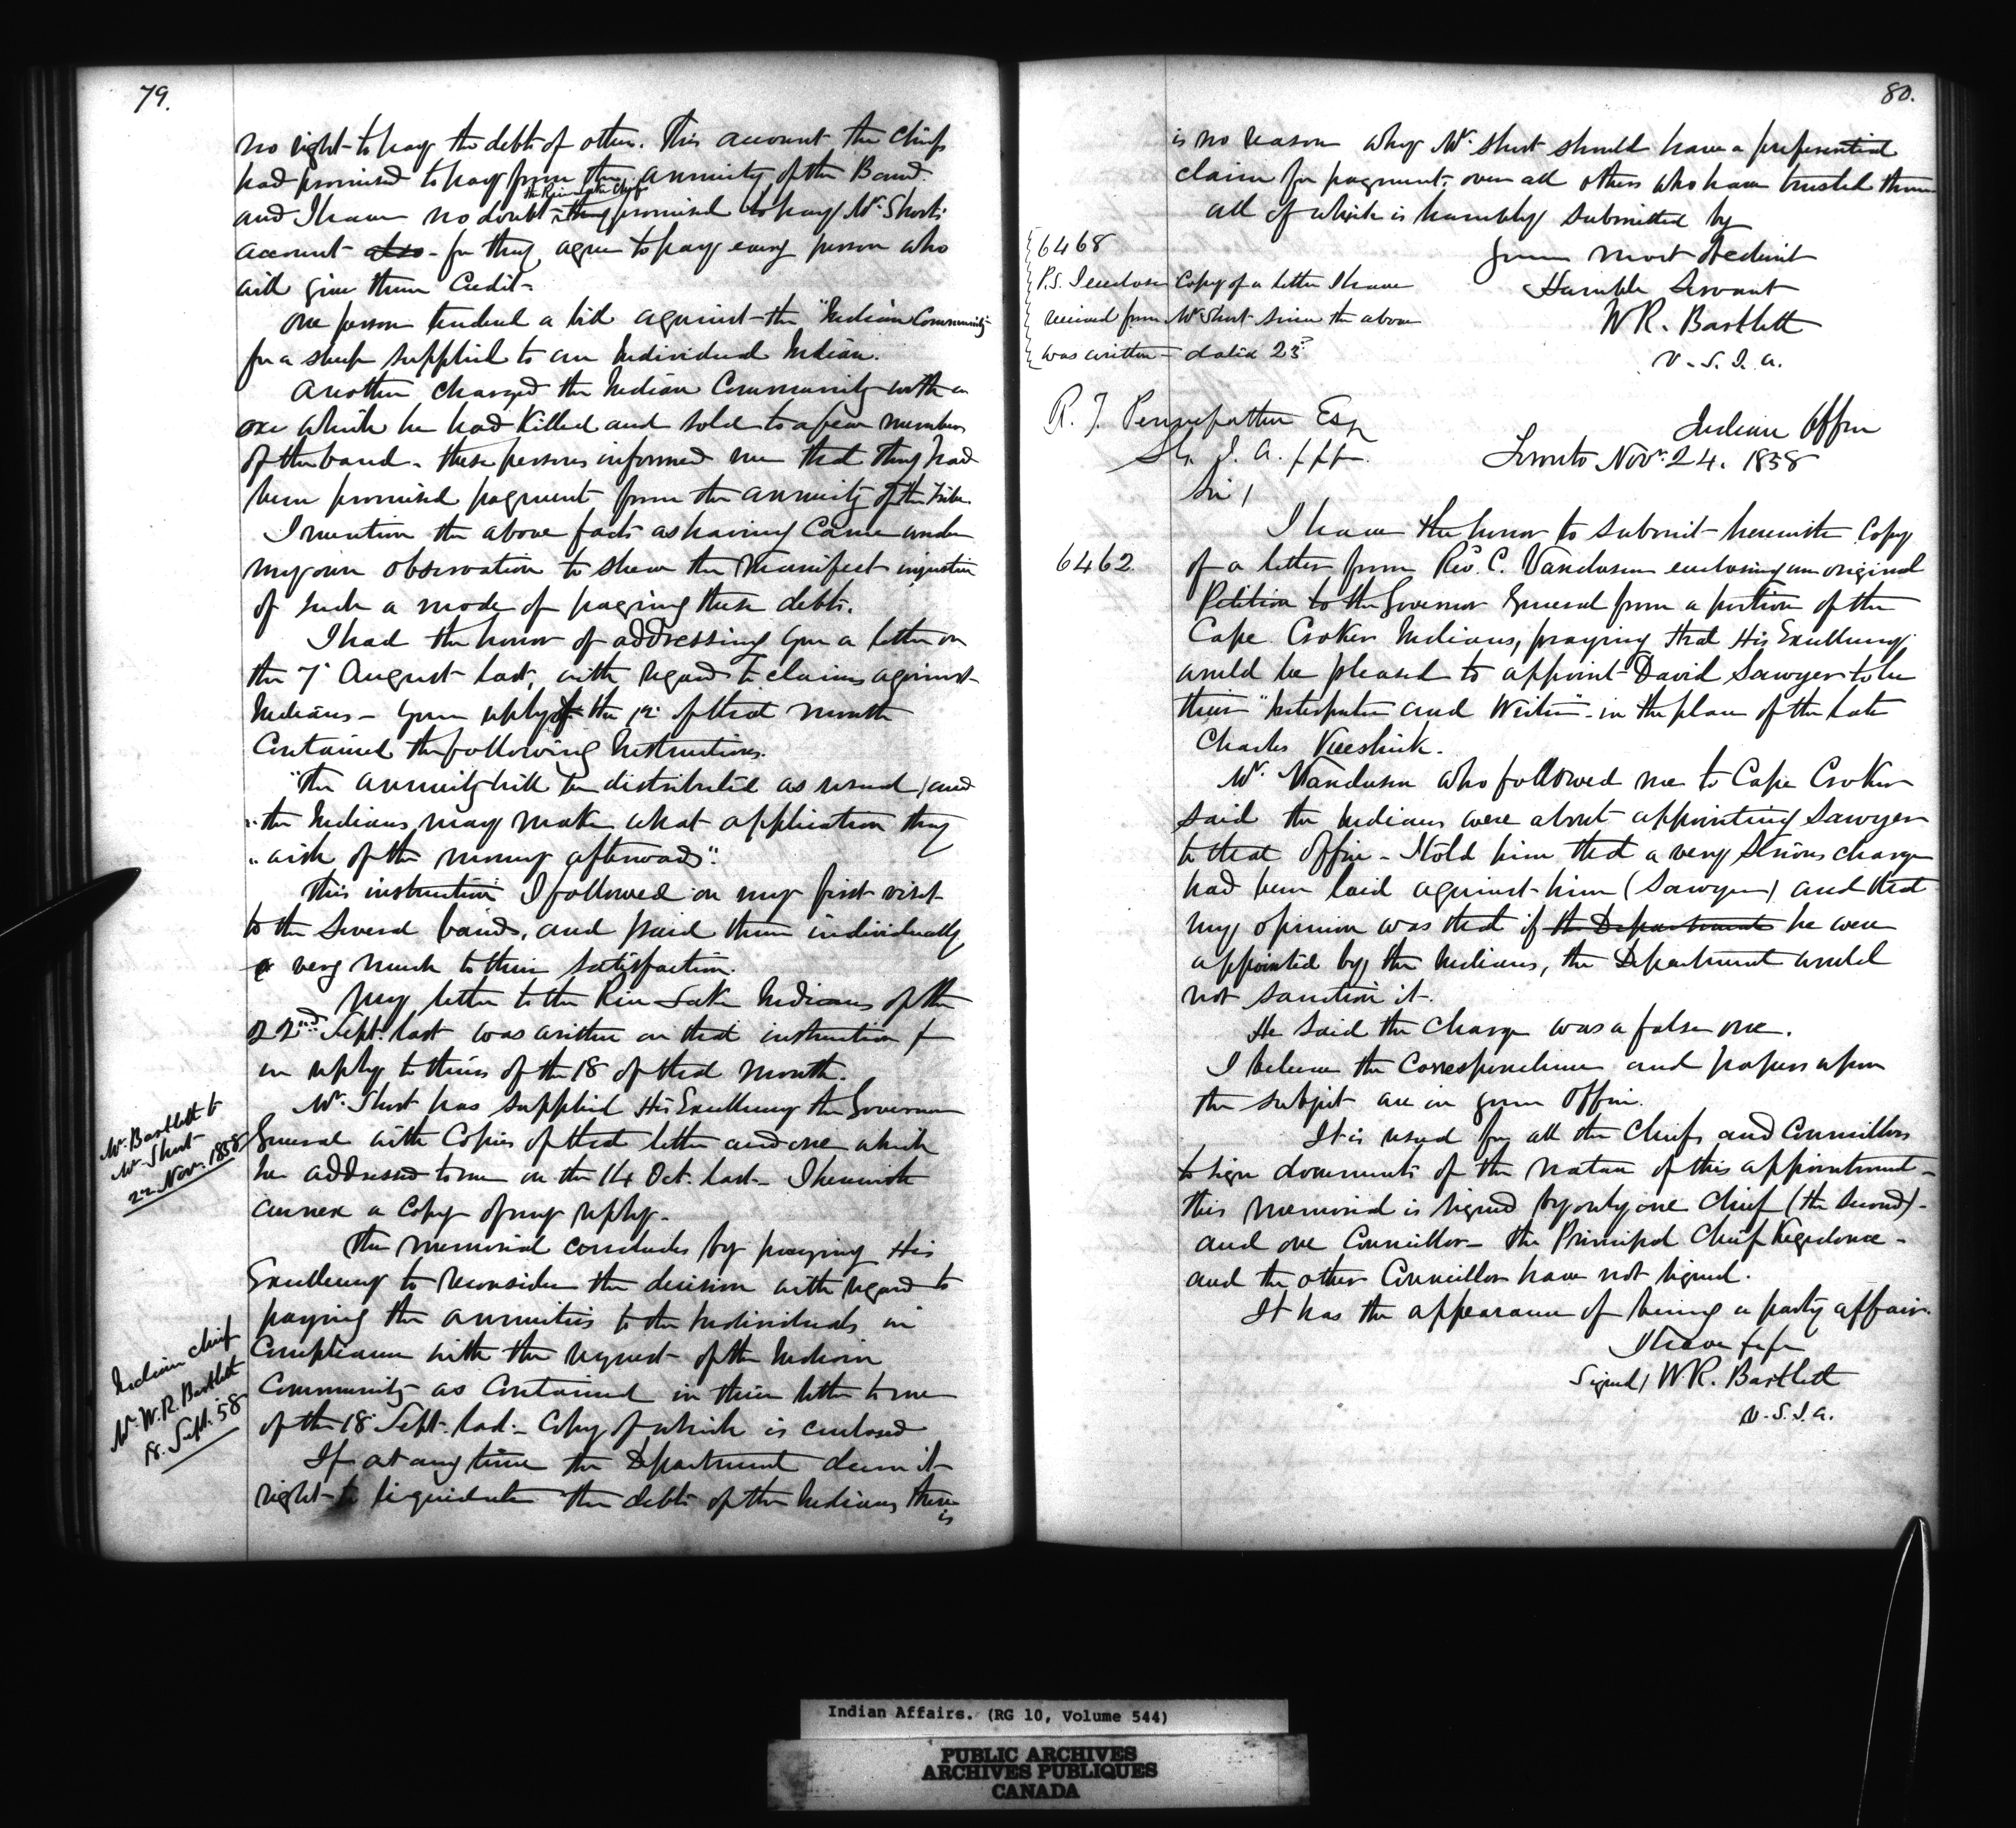 79.
no right to pay the debts of others. This account the Chiefs
had promised to pay from the annuity of the Band.
the Rice Lake Chiefs
and I have no doubt they promised to pay Mr. Short's
account also - for they agree to pay every person who
will give them Credit -
One person tendered a bill against the "Indian Community"
for a sheep supplied to an Individual Indian.
Another charged the Indian Community with an
ox which he had killed and sold to a few members
of the band - these persons informed me that they had
been promised payment from the annuity of the tribe.
I mention the above facts as having came under
my own observation to shew the manifest injustice
of such a mode of paying these debts.
I had the honor of addressing you a letter on
the 7 August last, with regard to claims against
Indians - your reply of the 12 of that month
Contained the following Instructions.
"The annuity will be distributed as usual, and
"the Indians may make what application they
"wish of the money afterwards".
This instruction I followed on my first visit
to the several bands, and paid them individually
very much to their satisfaction.
My letter to the Rice Lake Indians of the
22nd Sept. last was written on that instruction &
in reply to theirs of the 18 of that month.
Mr. Bartlett to
Mr. Short
22 Nov. 1858
Mr. Short has supplied His Excellency the Governor
General with Copies of that letter and one which
he addressed to me on the 14 Oct. last - I herewith
annex a Copy of my reply -
The memorial concludes by praying His
Excellency to reconsider the decision with regard to
paying the annuities to the Individuals in
Indian Chief
Mr. W.R. Bartlett
18. Sept. 58
Compliance with the request of the Indian
Community as Contained in their letter to me
of the 18 Sept. last - Copy of which is enclosed
If at any time the Department deem it
right to liquidate the debts of the Indians there
is
80.
is no reason why Mr. Short should have a preferential
claim for payment, over all others who have trusted them
all of which is humbly submitted by
your most Obedient
Humble Servant
W R. Bartlett
V. S. I. A.
6468
P.S. I enclose Copy of a letter I have
received from Mr Short since the above
was written - dated 23d
R. T. Pennefather Esq
S. G. I. A. &&&.
Indian Office
Toronto Nov. 24. 1858
Sir,
I have the honor to submit herewith Copy
6462.
of a letter from Rev. C. Vandusen enclosing an original
Petition to the Governor General from a portion of the
Cape Croker Indians, praying that His Excellency
would be pleased to appoint David Sawyer to be
their "Interpreter and Writer" in the place of the late
Charles Keeshick.
Mr. Vandusen who followed me to Cape Croker
said the Indians were about appointing Sawyer
to that office - I told him that a very serious charge
had been laid against him (Sawyer) and that
my opinion was that if the Department he were
appointed by the Indians, the Department would
not sanction it.
He said the charge was a false one.
I believe the Correspondence and papers upon
the subject are in your Office.
It is usual for all the Chiefs and Councillors
to sign documents of the nature of this appointment -
this memorial is signed by only one Chief (the second) -
and one Councillor - the Principal Chief Kegedonce -
and the other Councillors have not signed.
It has the appearance of being a party affair.
I have &c &c
Signed, W R. Bartlett
V. S. I. A.
Indian Affairs. (RG 10, Volume 544)
PUBLIC ARCHIVES
ARCHIVES PUBLIQUES
CANADA